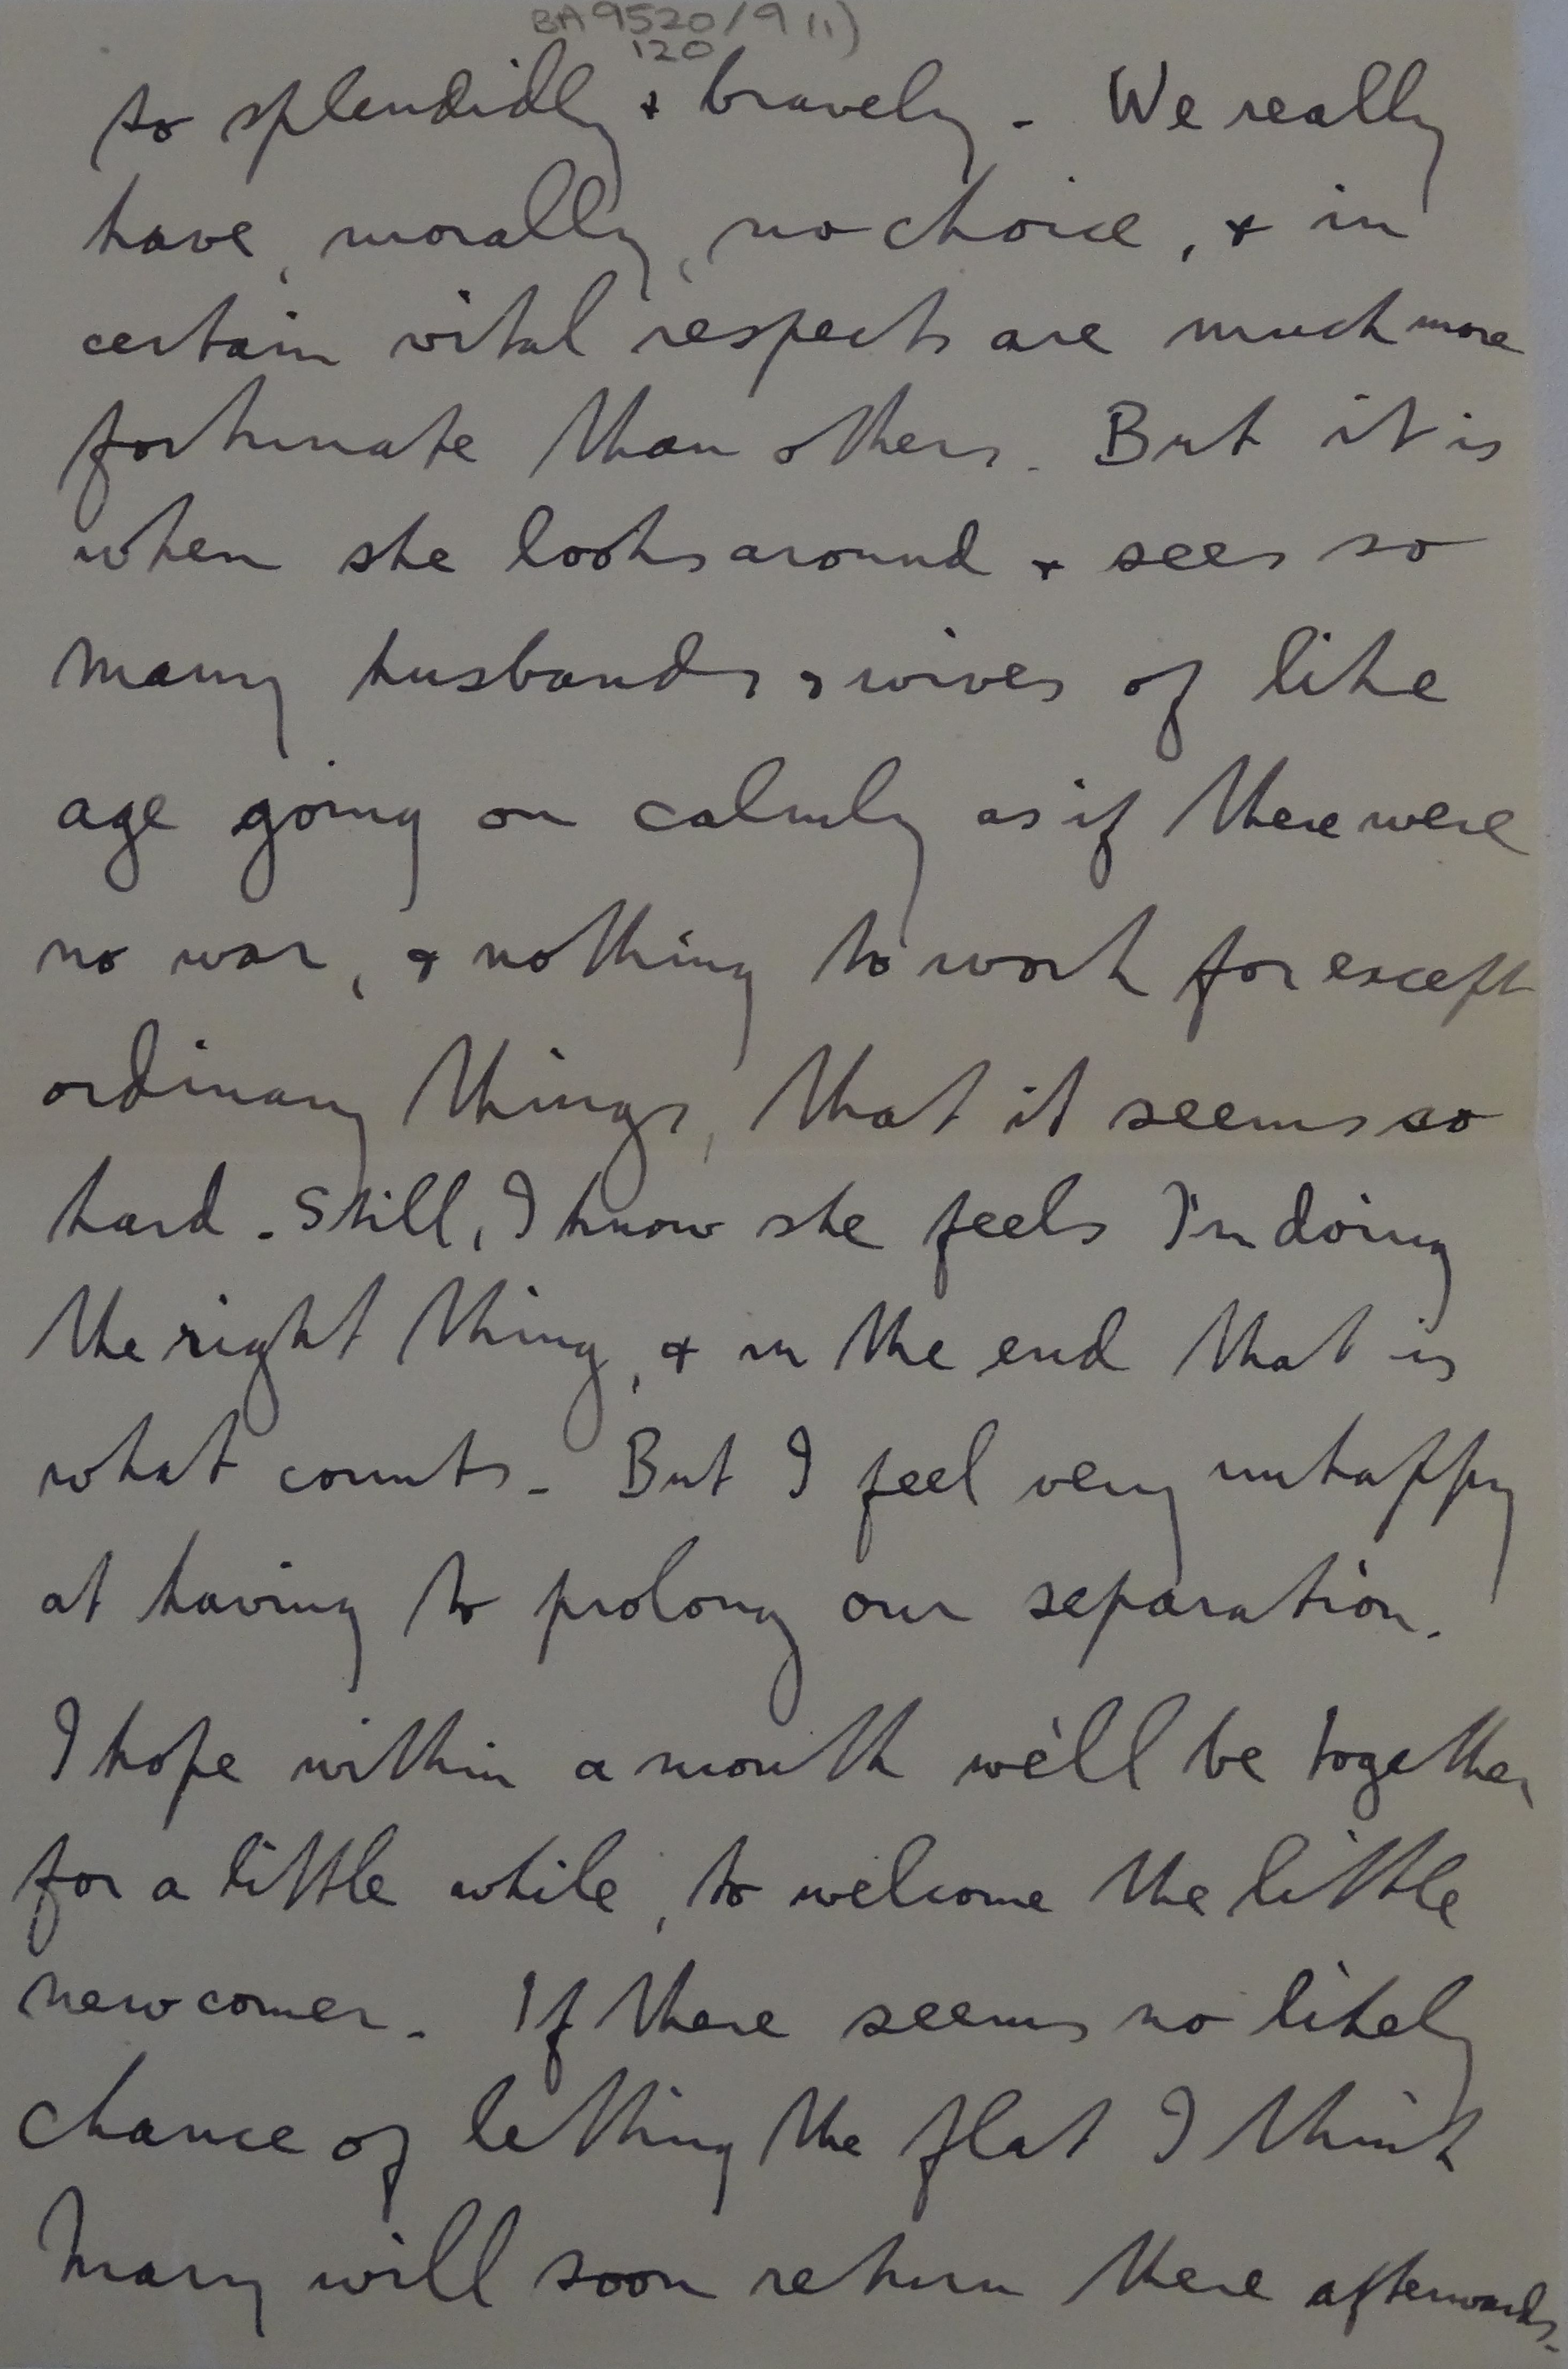 BA9520/9 (i)
120
so splendidly & bravely - We really
have, morally, no choice, & in
certain vital respects are much more
fortunate than others. But it is
when she looks around & sees so
many husbands & wives of like
age going on calmly as if there were
no war, & nothing to work for except
ordinary things, that it seems so
hard. Still, I know she feels I'm doing
the right thing, & in the end that is
what counts - But I feel very unhappy
at having to prolong our separation.
I hope within a month we'll be together
for a little while, to welcome the little
newcomer. If there seems no likely
chance of letting the flat I think
Mary will soon return there afterwards.